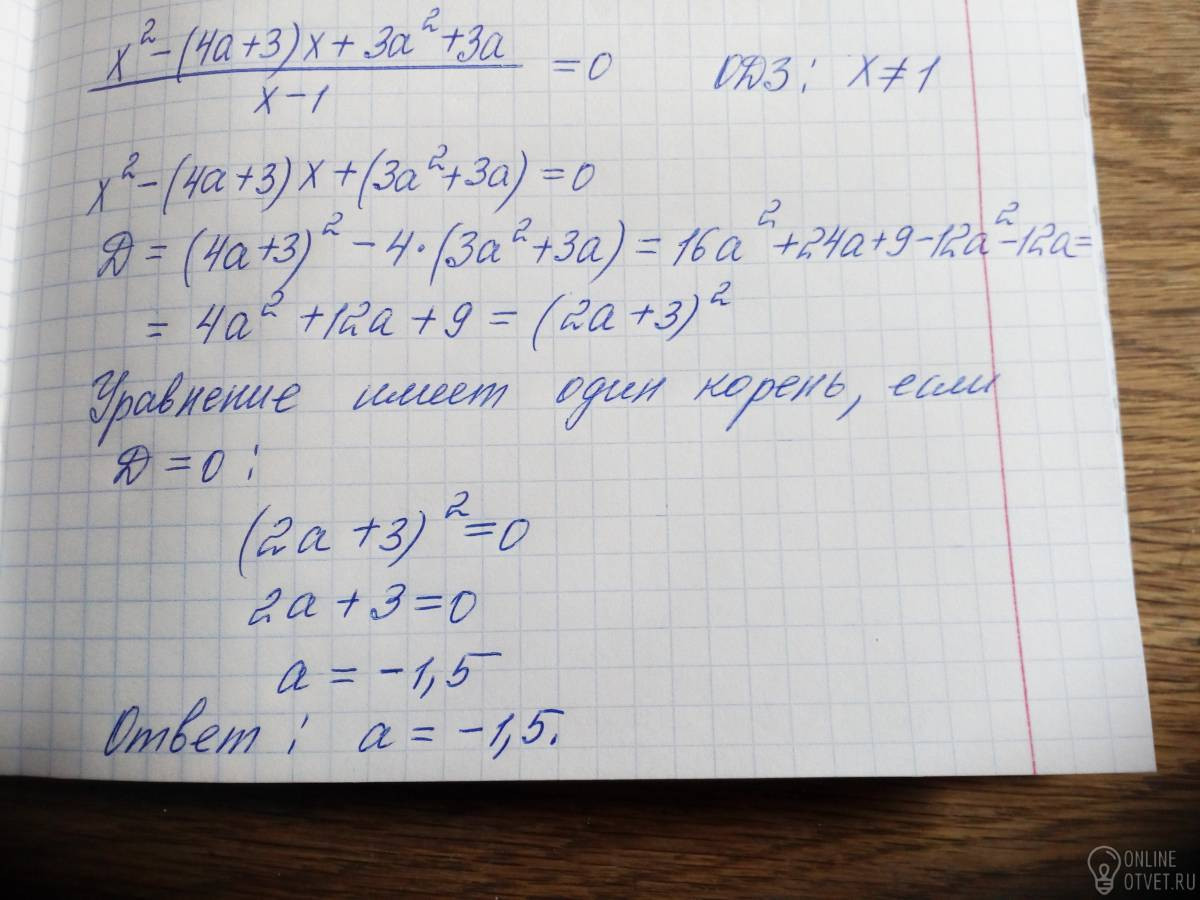 x² - (4a+3)x + 3a² + 3a / x - 1 = 0 ОДЗ: x ≠ 1
x² - (4a+3)x + (3a² + 3a) = 0
Д = (4a+3)² - 4·(3a² + 3a) = 16a² + 24a + 9 - 12a² - 12a =
= 4a² + 12a + 9 = (2a+3)²
Уравнение имеет один корень, если
Д = 0:
(2a + 3)² = 0
2a + 3 = 0
a = -1,5
Ответ: a = -1,5.
ONLINE
OTVET.RU